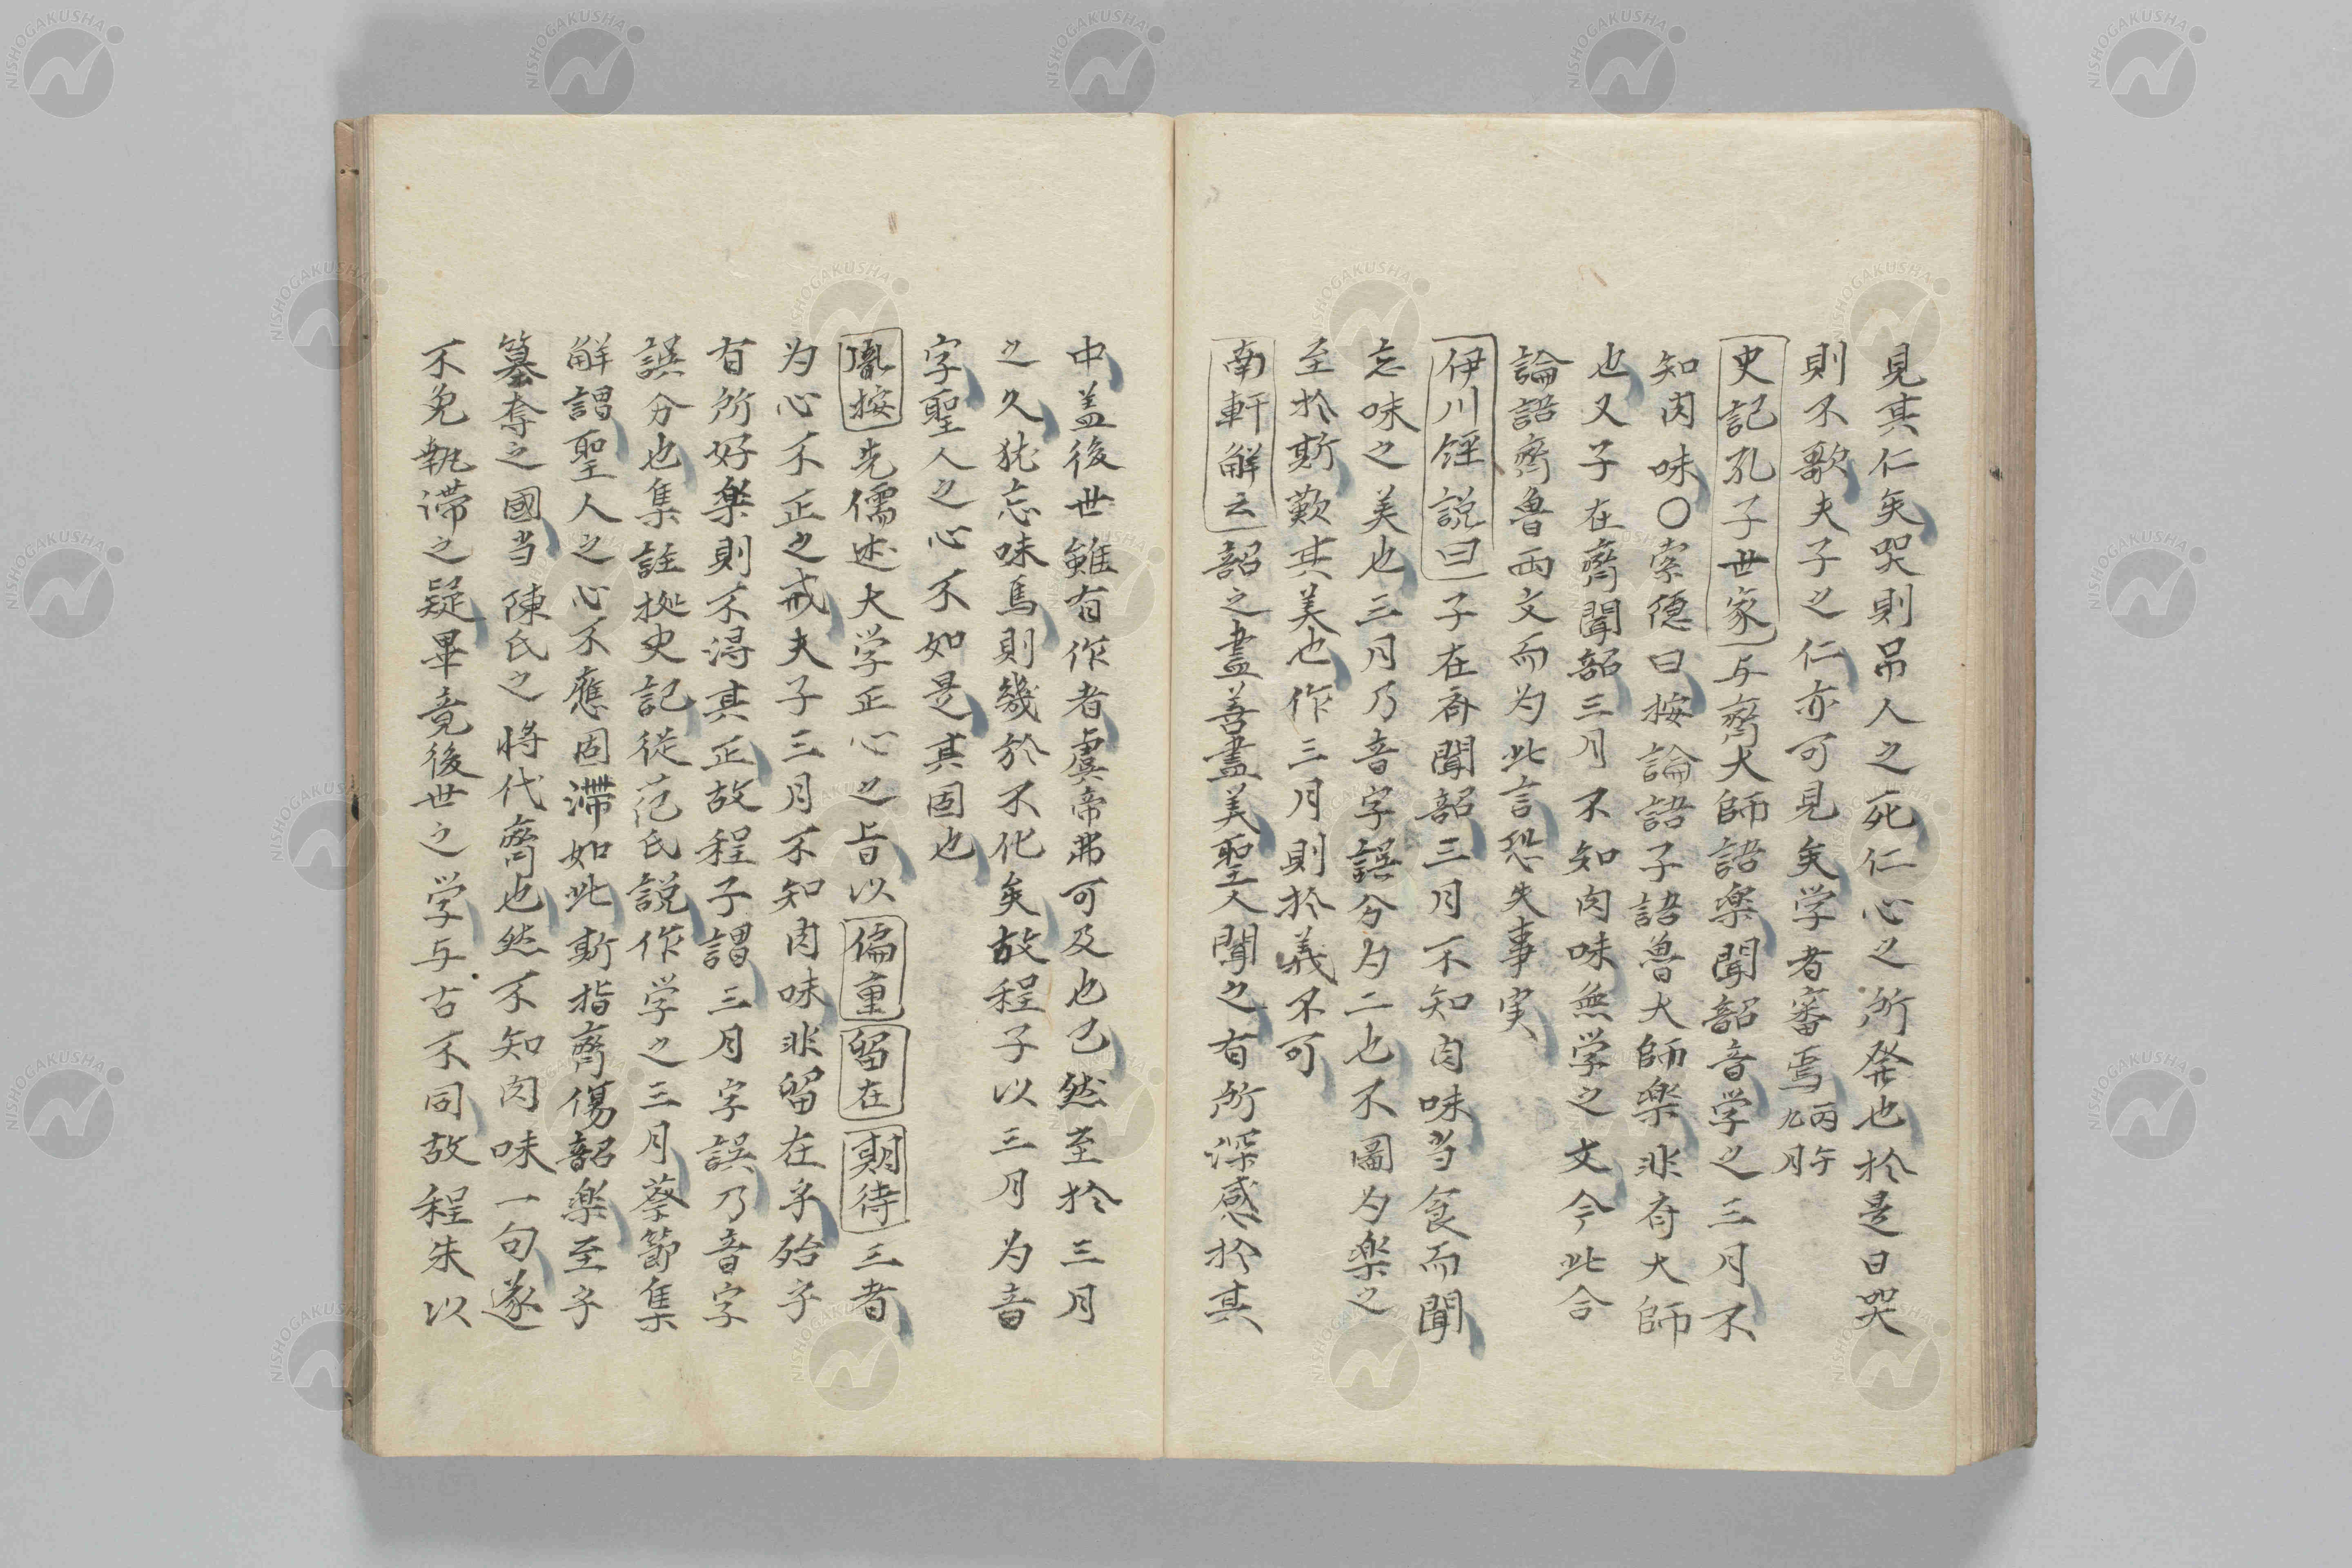 見其仁矣哭則吊人之死仁心之所発也於是日哭
則不歌夫子之仁亦可見矣学者審焉丙午九月
史記孔子世家与齊大師語楽聞韶音学之三月不
知肉味〇索隠曰按論語子語魯大師楽非斉大師
也又子在齊聞韶三月不知肉味無学之文今此合
論語齊魯両文而为此言恐失事実
伊川経説曰子在斉聞韶三月不知肉味当食而聞
忘味之美也三月乃音字誤分为二也不圖为楽之
至於斯歎其美也作三月則於義不可
南軒解云韶之盡善盡美聖人聞之有所深感於其
中盖後世雖有作者虞帝弗可及也已然至於三月
之久犹忘味焉則幾於不化矣故程子以三月为音
字聖人之心不如是其固也
胤按先儒述大学正心之旨以偏重留在期待三者
为心不正之戒夫子三月不知肉味非留在乎殆字
有所好楽則不得其正故程子謂三月字誤乃音字
誤分也集註拠史記従范氏説作学之三月蔡節集
解謂聖人之心不應固滞如此斯指齊傷韶楽至于
簒奪之國当陳氏之将代齊也然不知肉味一句遂
不免執滞之疑畢竟後世之学与古不同故程朱以
NISHOGAKUSHA